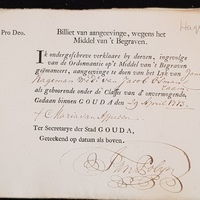 Hage
Pro Deo. Billiet van aangeevinge, wegens het
Middel van 't Begraven.
IK ondergeschreve verklaare by deezen, ingevolge
van de Ordonnantie op 't Middel van 't Begraven
geëmaneert, aangevinge te doen van het Lyk van
Hageman Wed. van Jacob
als gehoorende onder de Classis van d' onvermogende.
Gedaan binnen GOUDA, den 29 April
Ter Secretarye der Stad GOUDA,
Geteekend op datum als boven.